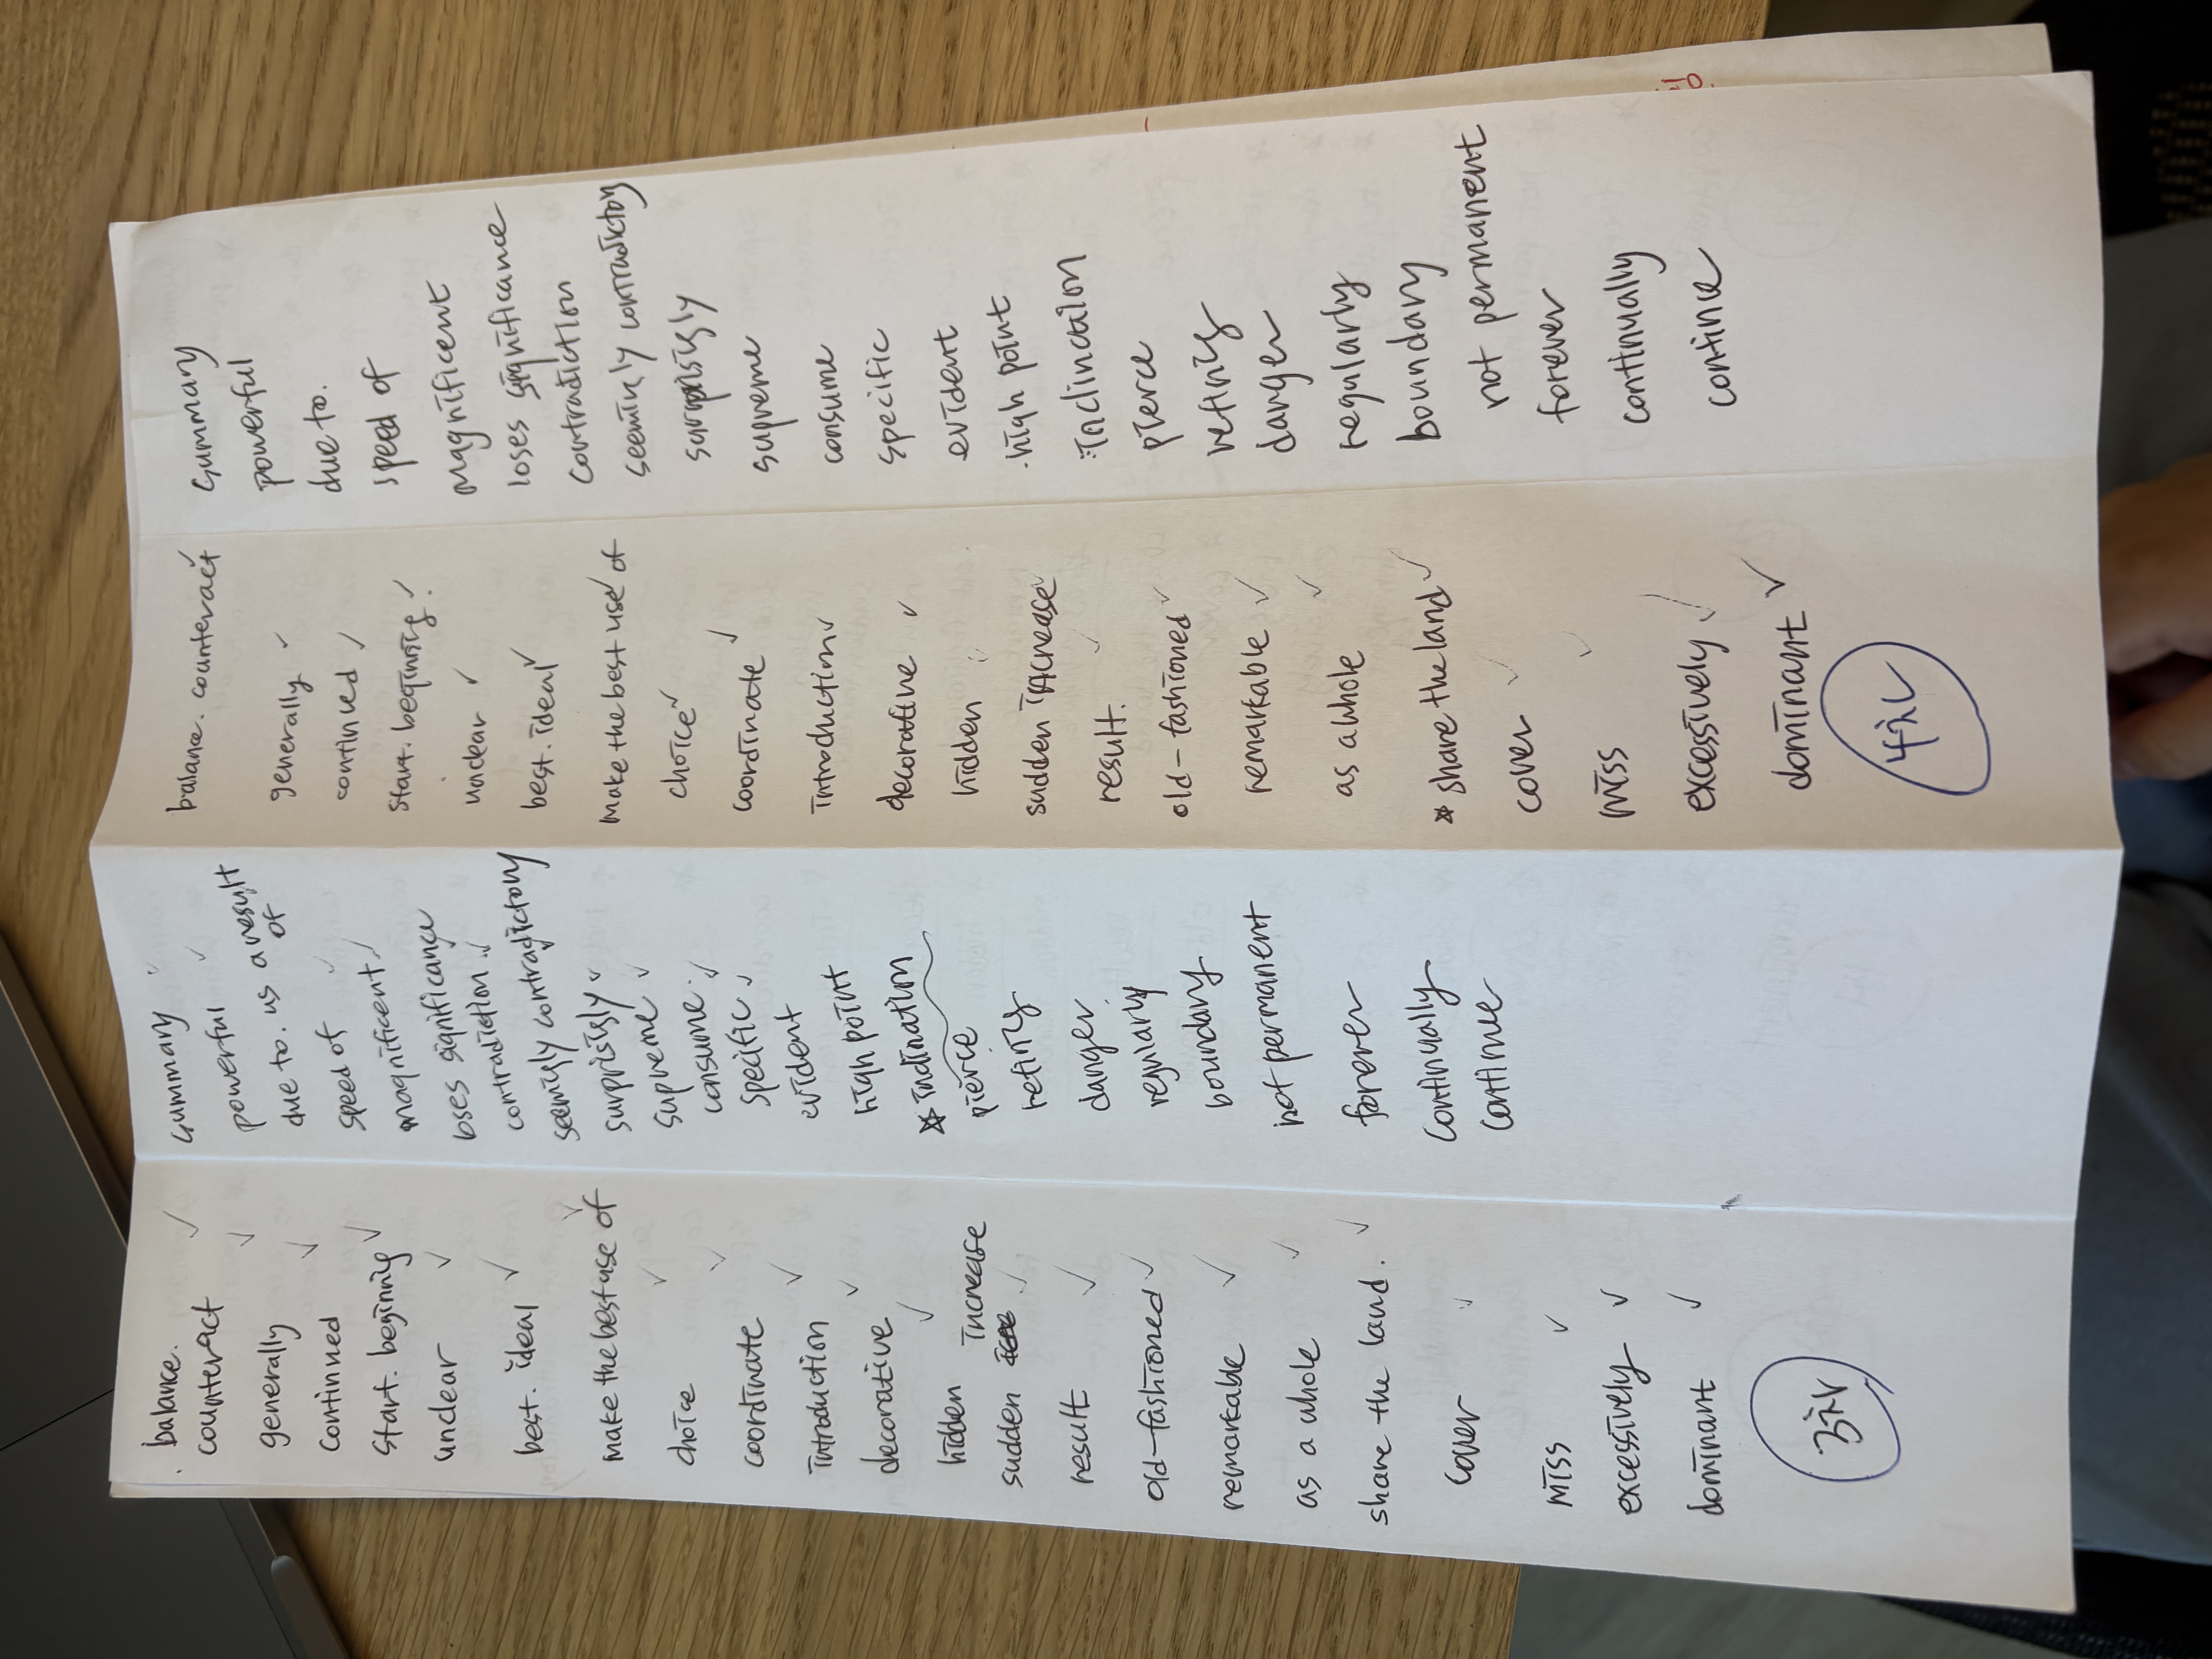 balance.
counteract
generally
continued
start. beginning
unclear
best. ideal
make the best use of
choice
coordinate
introduction
decorative
hidden
sudden increase
result
old-fashioned
remarkable
as a whole
share the land.
cover
miss
excessively
dominant
3차
summary
powerful
due to. as a result of
speed of
magnificent
loses significance
contradiction
seemingly contradictory
surprisingly
supreme
consume
specific
evident
high point
* inclination
pierce
refining
danger
regularly
boundary
not permanent
forever
continually
continue
balance. counteract
generally
continued
start. beginning
unclear
best. ideal
make the best use of
choice
coordinate
introduction
decorative
hidden
sudden increase
result.
old-fashioned
remarkable
as a whole
* share the land
cover
miss
excessively
dominant
4차
summary
powerful
due to.
speed of
magnificent
loses significance
contradiction
seemingly contradictory
surprisingly
supreme
consume
specific
evident
high point
inclination
pierce
refining
danger
regularly
boundary
not permanent
forever
continually
continue